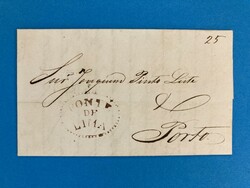 25
Snr Joaquim Pinto Leite
&
Porto
PONTE
DE
LIMA